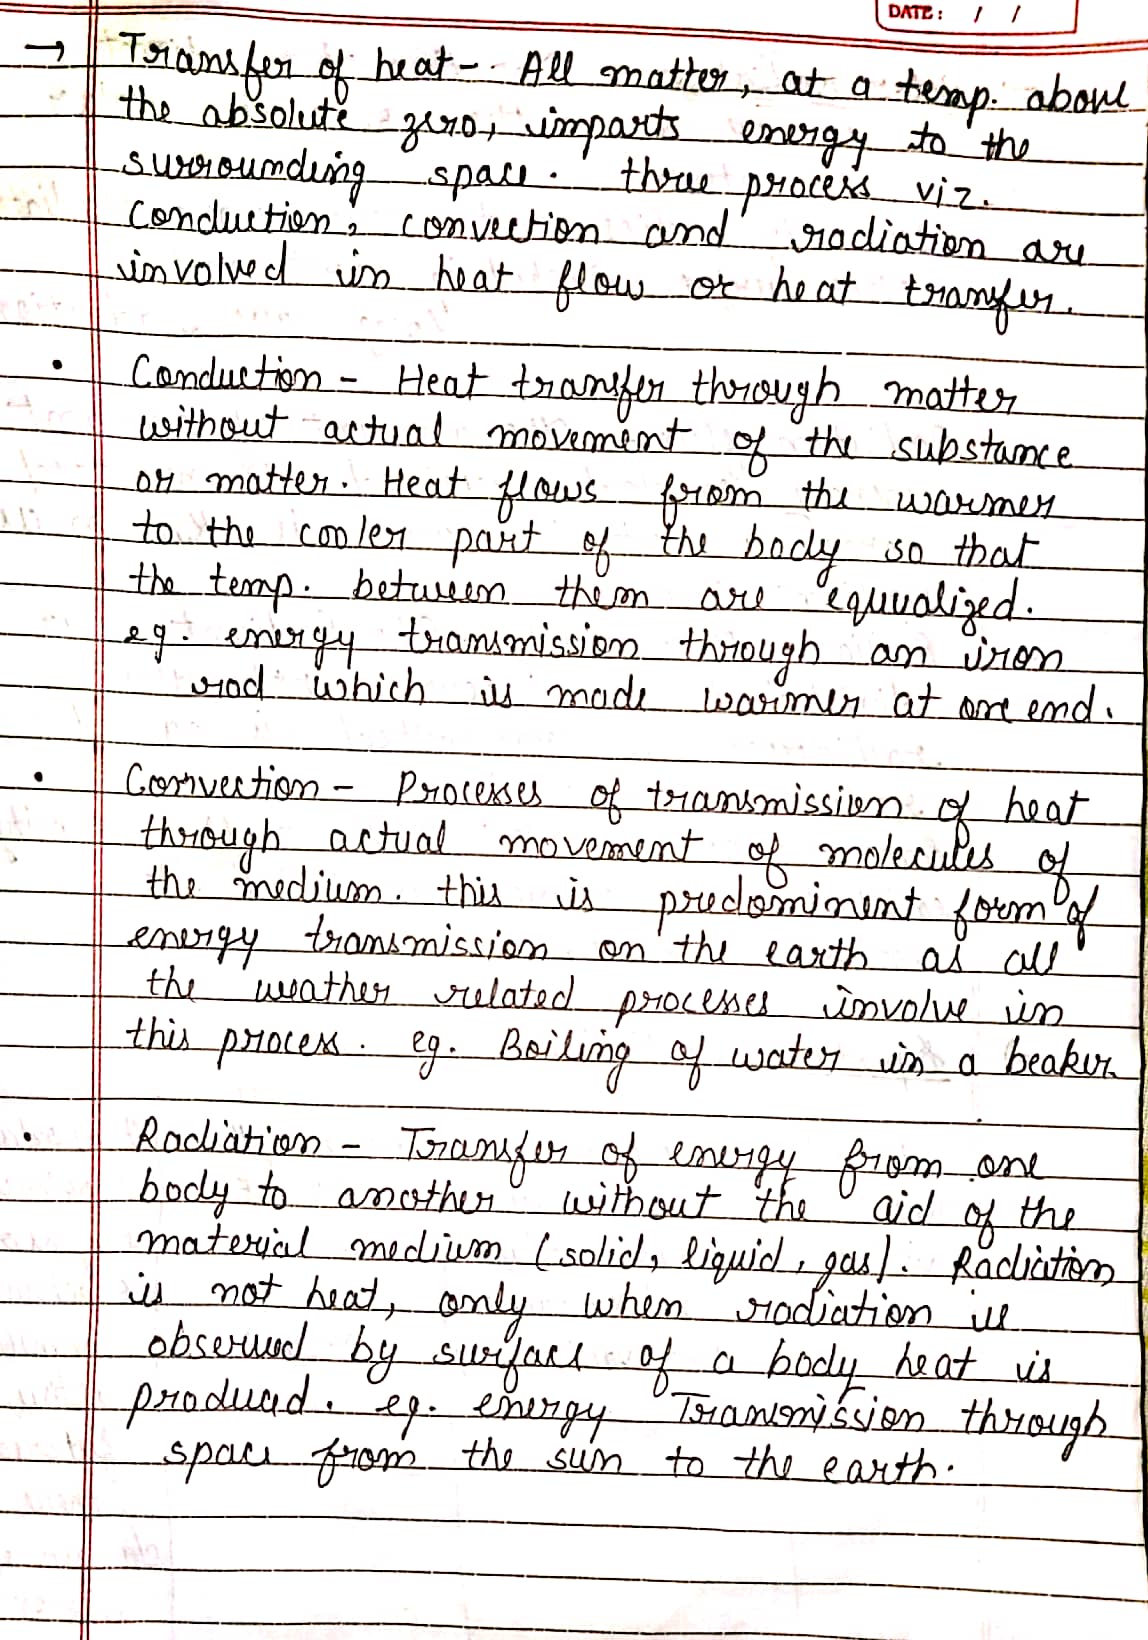 DATE: / /
→ Transfer of heat - All matter, at a temp. above
the absolute zero, imparts energy to the
surrounding space. three process viz.
Conduction, convection and radiation are
involved in heat flow or heat transfer.
• Conduction - Heat transfer through matter
without actual movement of the substance
or matter. Heat flows from the warmer
to the cooler part of the body so that
the temp. between them are equualized.
eg. energy transmission through an iron
rod which is made warmer at one end.
• Convection - Processes of transmission of heat
through actual movement of molecules of
the medium. this is predominent form of
energy transmission on the earth as all
the weather related processes involve in
this process. eg. Boiling of water in a beaker.
• Radiation - Transfer of energy from one
body to another without the aid of the
material medium (solid, liquid, gas). Radiation
is not heat, only when radiation is
observed by surface of a body heat is
produced. eg. energy Transmission through
space from the sun to the earth.